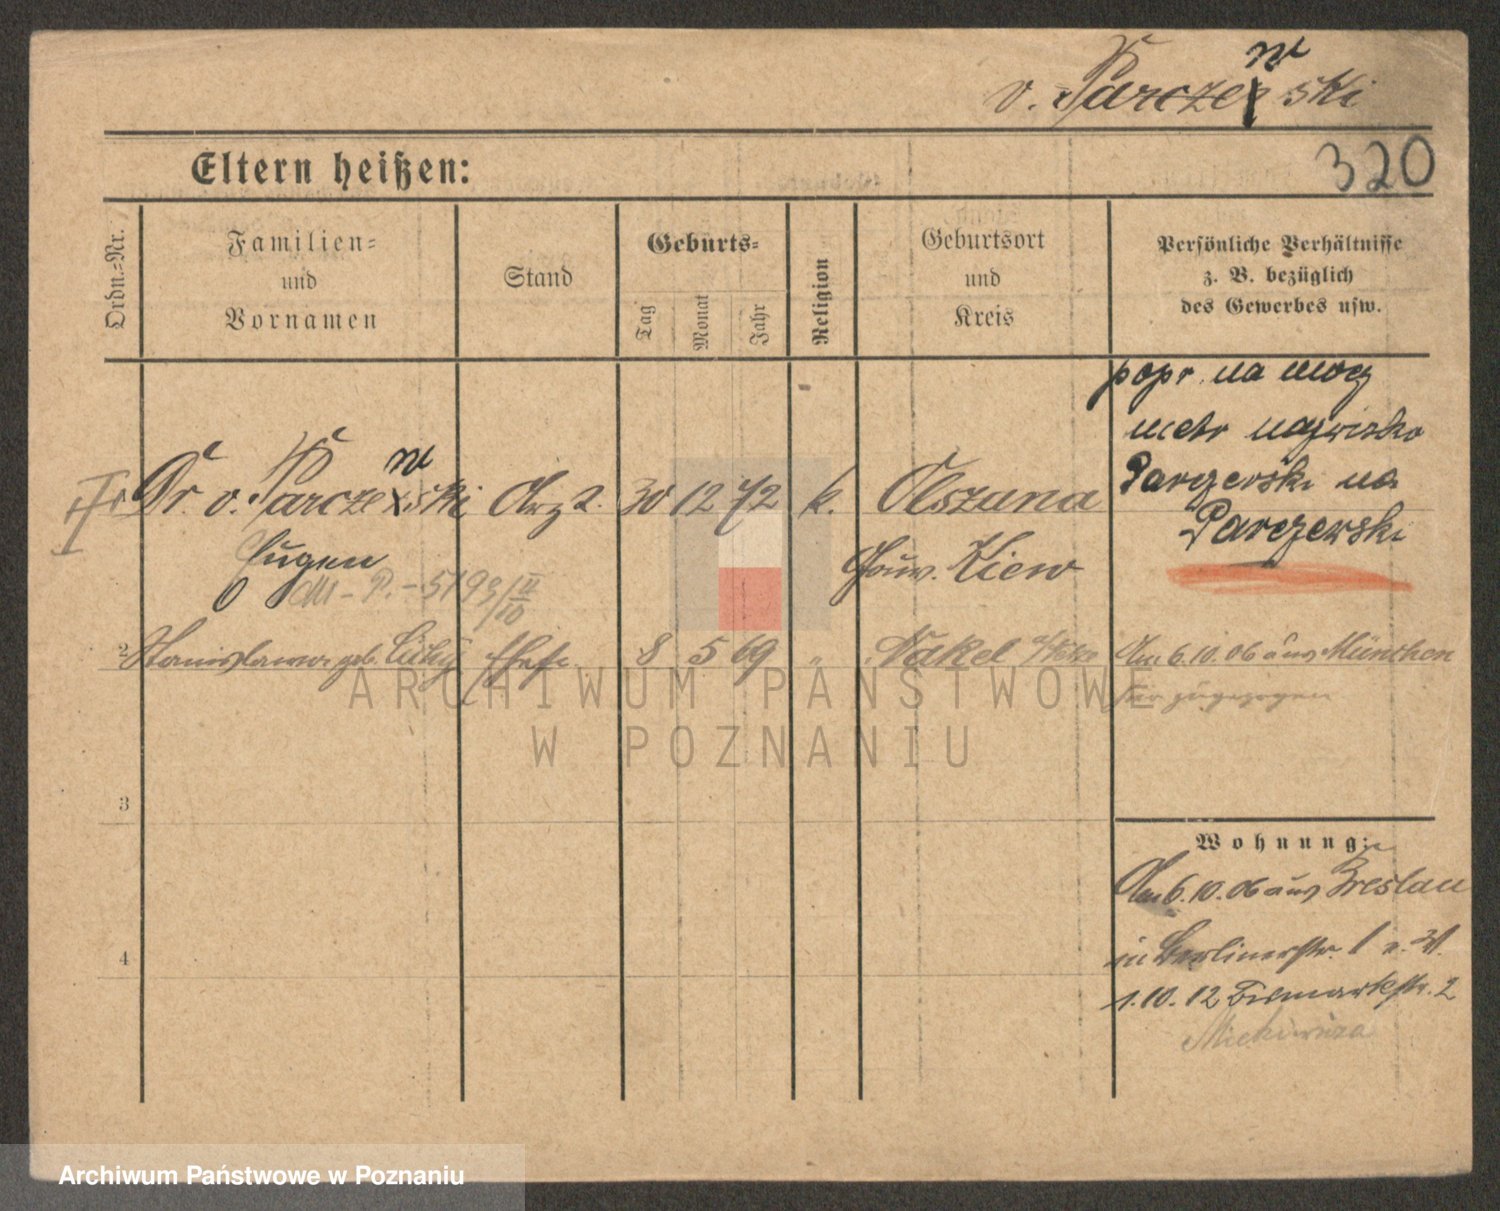 w
v. Parczewski
Eltern heißen:
320
Ordn.=Nr.
Familien=
und
Vornamen
Stand
Geburts=
Tag
Monat
Jahr
Religion
Geburtsort
und
Kreis
Persönliche Verhältnisse
z. B. bezüglich
des Gewerbes usw.
popr. na mocy
metr nazwisko
w
Dr. v. Parczewski Arzt. 30 12 72 k. Olszana
Parczerski na
Parczewski
Eugen
Gouv. Kiew
P. - 5193/
2 Stanislawa geb. Ehefr. 8 5 69 " Nakel
Am 6.10.06 aus München
hier zugezogen
3
Wohnung:
Am 6.10.06 aus Breslau
4
in Berlinerstr. 1
1.10.12 Bismarkstr. 2
Mickiewicza
ARCHIWUM PAŃSTWOWE
W POZNANIU
Archiwum Państwowe w Poznaniu